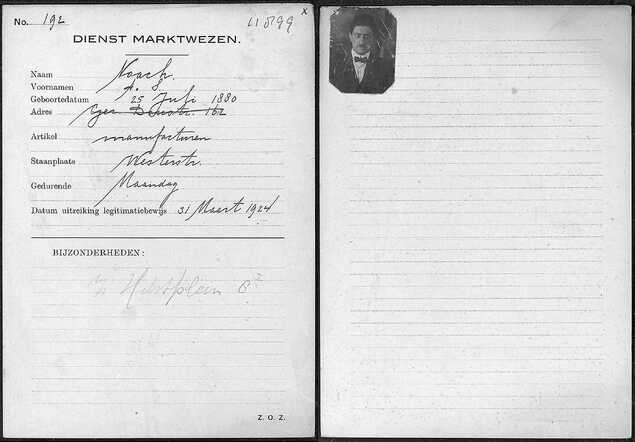 No. 192
DIENST MARKTWEZEN.
Naam Noach.
Voornamen A. S
Geboortedatum 25 Juli 1880
Adres 162
Artikel manufacturen
Staanplaats Westerstr.
Gedurende Maandag
Datum uitreiking legitimatiebewijs 31 Maart 1924
BIJZONDERHEDEN:
Z. O. Z.